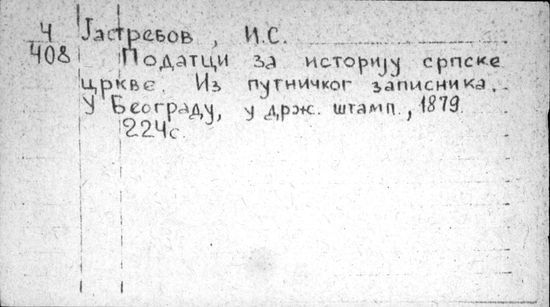 4 Јастребов, И.С.
408 Податци за историју српске
цркве. Из путничког записника.
У Београду, у држ. штамп., 1879.
224с.